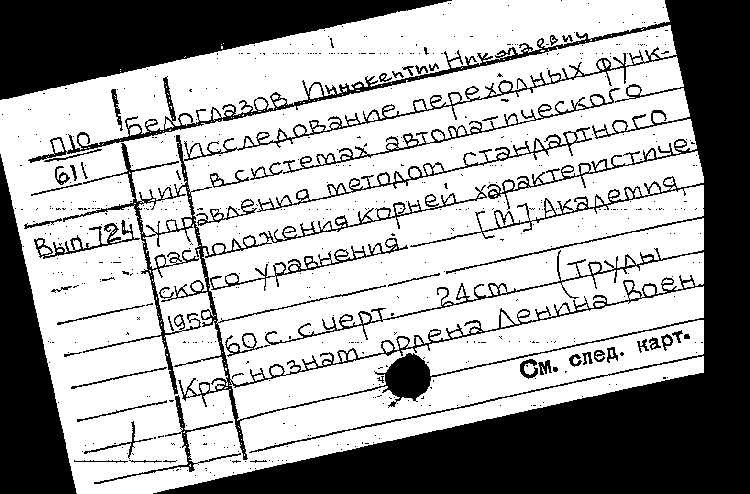 Белоглазов Иннокентий Николаевич
П10
611
Вып. 724
Исследование переходных функ-
ций в системах автоматического
управления методом стандартного
расположения корней характеристиче-
ского уравнения. [М]. Академия,
1959.
60 с. с черт. 24 cm. (Труды
Краснознам. ордена Ленина Воен.
См. след. карт.